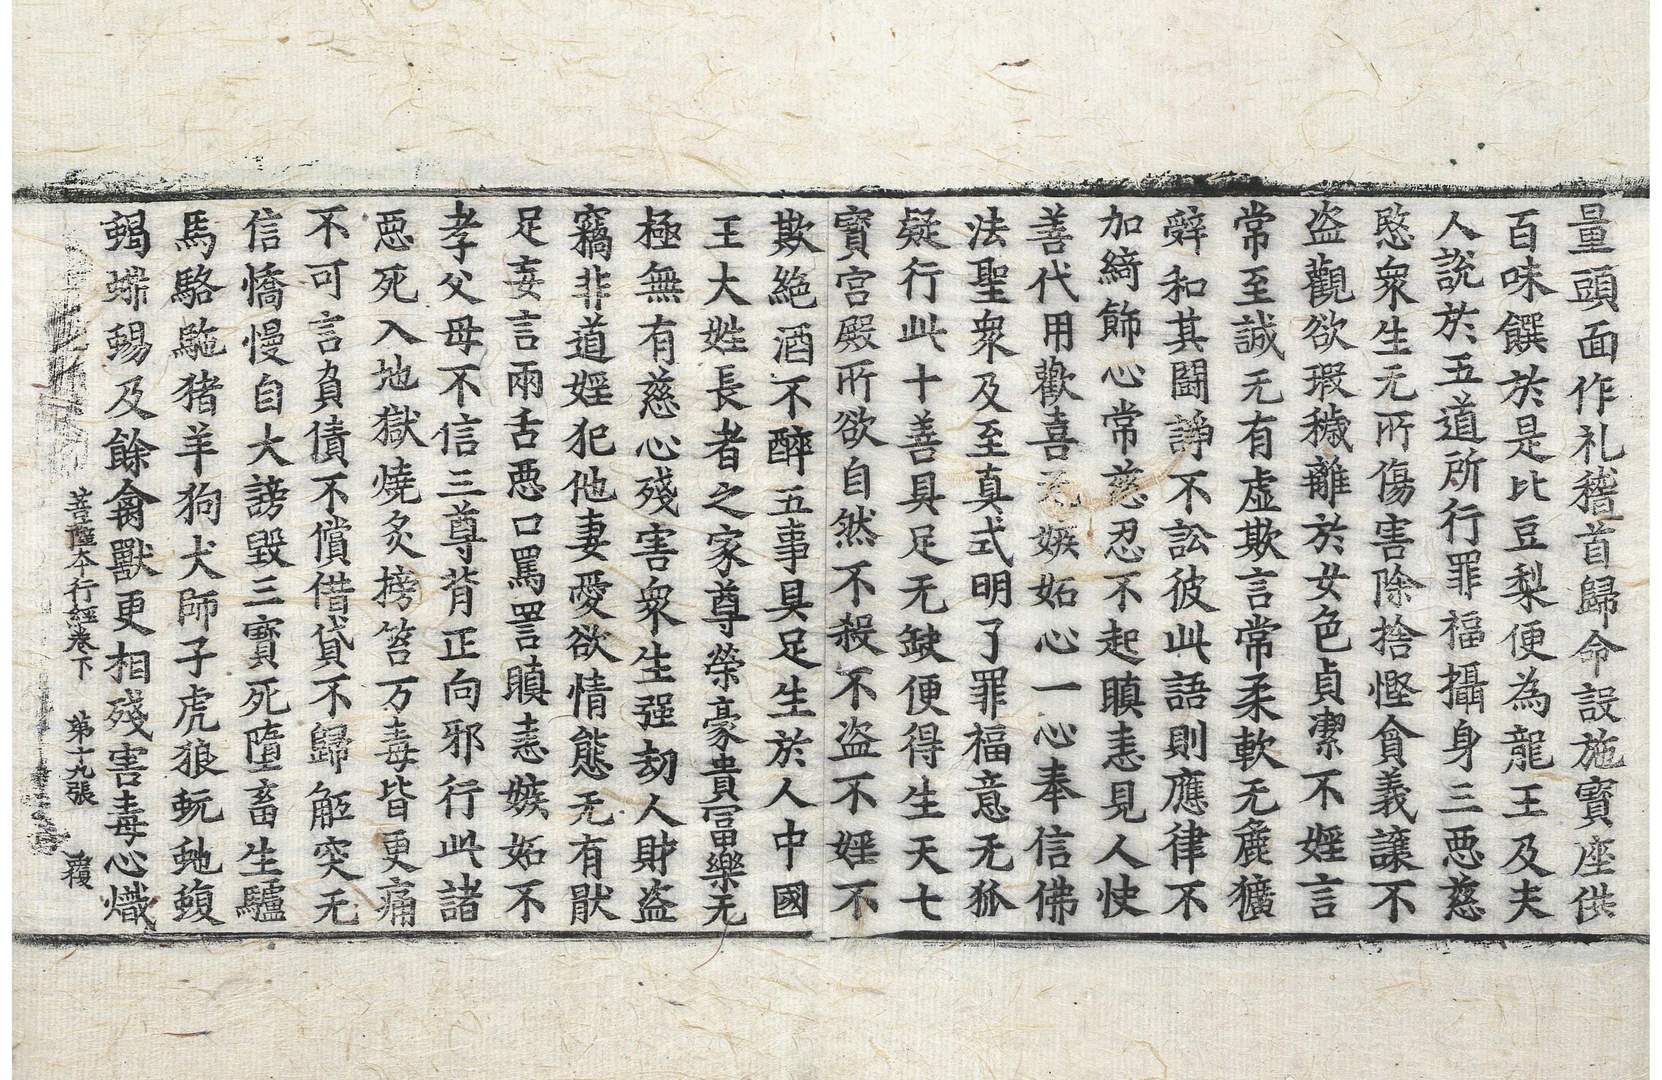 量頭面作礼稽首歸命設施寶座供
百味饌於是比豆梨便為龍王及夫
人說於五道所行罪福攝身三惡慈
愍衆生无所傷害除捨慳貪義讓不
盗觀欲瑕穢離於女色貞潔不婬言
常至誠无有虛欺言常柔軟无麁獷
辝和其鬪諍不訟彼此語則應律不
加綺飾心常慈忍不起瞋恚見人快
善代用歡喜无嫉妬心一心奉信佛
法聖衆及至真式明了罪福意无狐
疑行此十善具足无缺便得生天七
寳宫殿所欲自然不殺不盗不婬不
欺絶酒不醉五事具足生於人中國
王大姓長者之家尊榮豪貴富樂无
極無有慈心殘害衆生强刼人財盗
竊非道婬犯他妻愛欲情態无有猒
足妄言兩舌惡口罵詈瞋恚嫉妬不
孝父母不信三尊背正向邪行此諸
惡死入地獄燒炙搒笞万毒皆更痛
不可言負債不償借貸不歸觝突无
信憍慢自大謗毀三寶死墮畜生驢
馬駱駞猪羊狗犬師子虎狼蚖虵蝮
蝎蜥蜴及餘禽獸更相殘害毒心熾
菩薩本行經卷下 第十九張 覆